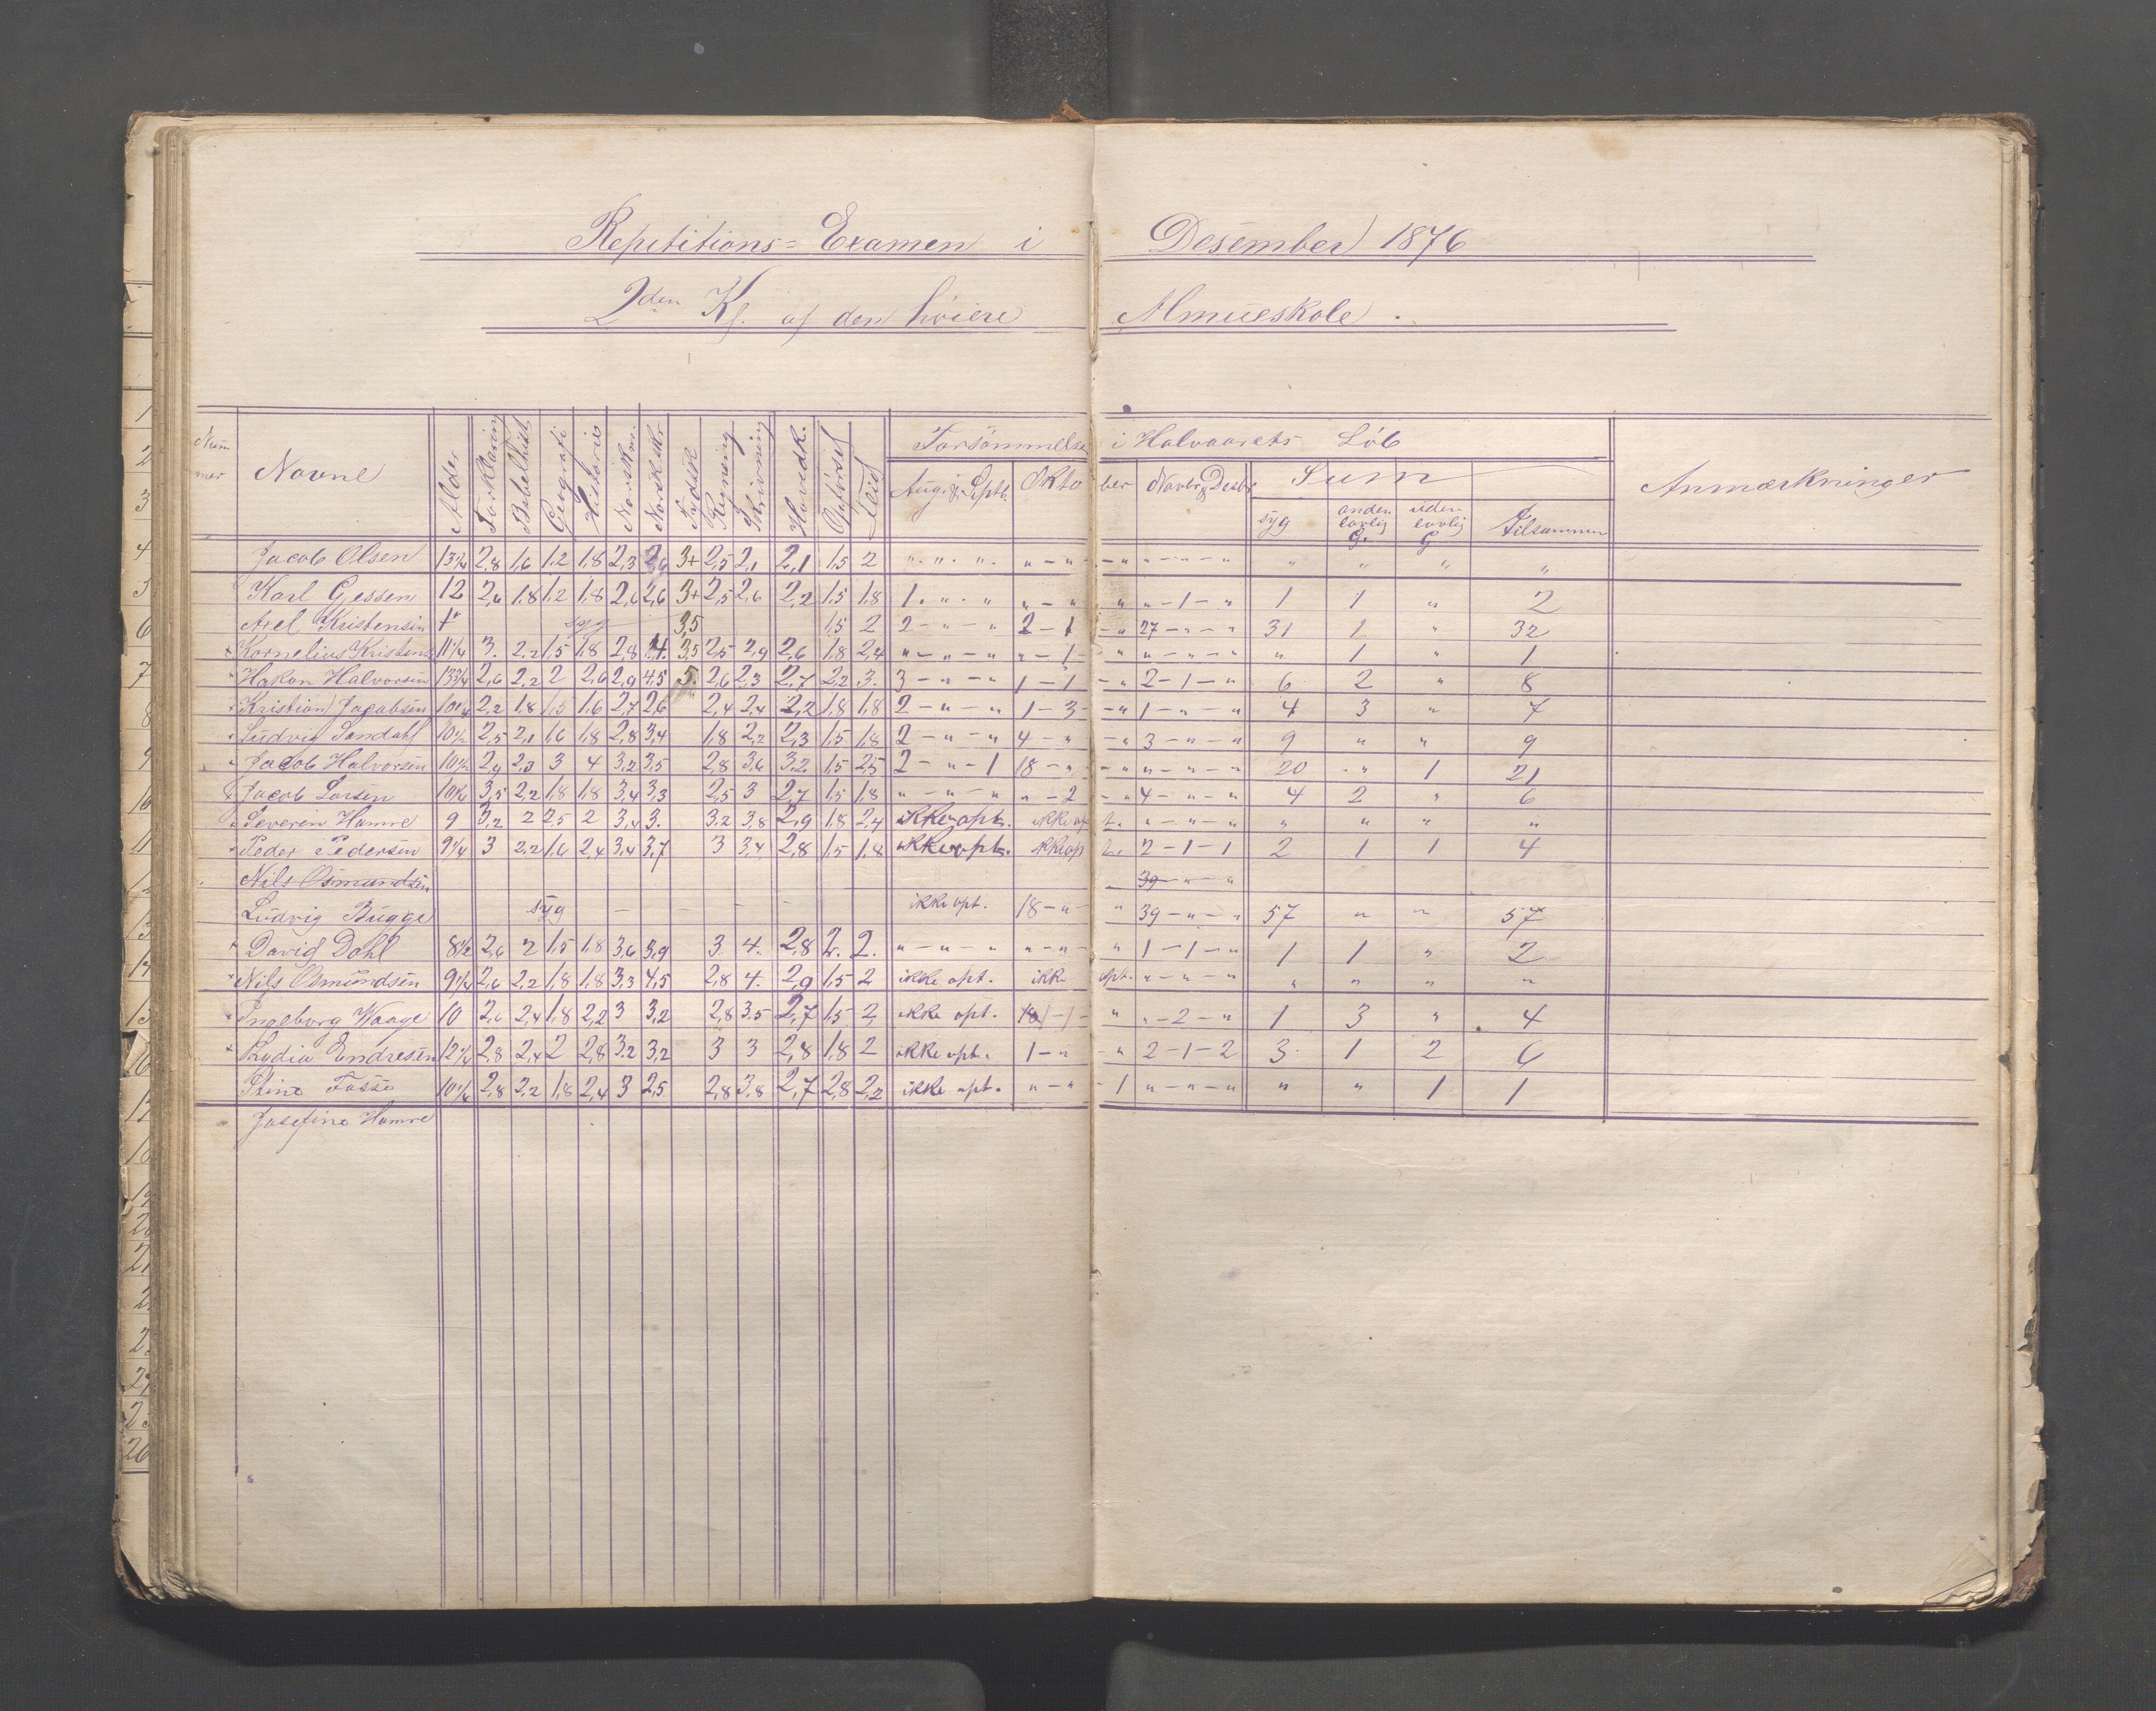 Repetitions=Examen i Desember 1876
2den Kl. af den høiere Almueskole.
Num mer Navne Alder Forklaring Bibelhist. Geografi Historie Norsk m. Norsk skr. Tydsk Regning Skrivning Hovedk. Opførsel Flid Forsømmelser i Halvaarets Løb Anmærkninger
Aug. & Septb. Oktober Novbr & Desbr Sum
syg anden lovlig G. uden lovlig G Tilsammen
Jacob Olsen 13 3/4 2,8 1,6 1,2 1,8 2,3 2,6 3+ 2,5 2,1 2,1 1,5 2 " " " " - " - " " - " - " " " " "
Karl Gessen 12 2,6 1,8 1,2 1,8 2,6 2,6 3+ 2,5 2,6 2,2 1,5 1,8 1 " " " - " " " - 1 - " 1 1 " 2
Axel Kristensen syg 3,5 1,5 2 2 - " - " 2 - 1 - " 27 - " - " 31 1 " 32
+ Kornelius Kristens 11 1/4 3. 2,2 1,5 1,8 2,8 4. 3,5 2,5 2,9 2,6 1,8 2,4 " - " - " " - 1 - " " - " - " " 1 " 1
" Hakon Halvorsen 13 3/4 2,6 2,2 2 2,6 2,9 4,5 5. 2,6 2,3 2,7 2,2 3. 3 - " - " 1 - 1 - " 2 - 1 - " 6 2 " 8
+ Kristian Jacabsen 10 1/4 2,2 1,8 1,5 1,6 2,7 2,6 2,4 2,4 2,2 1,8 1,8 2 - " - " 1 - 3 - " 1 - " - " 4 3 " 7
Ludvig Sandahl 10 1/2 2,5 2,1 1,6 1,8 2,8 3,4 1,8 2,2 2,3 1,5 1,8 2 - " - " 4 - " - " 3 - " - " 9 " " 9
Jacob Halvorsen 10 1/2 2,9 2,3 3 4 3,2 3,5 2,8 3,6 3,2. 1,5 2,5 2 - " - 1 18 - " - " " - " - " 20 " 1 21
Jacob Larsen 10 1/4 3,5 2,2 1,8 1,8 3,4 3,3 2,5 3 2,7 1,5 1,8 " - " - " " - 2 - " 4 - " - " 4 2 " 6
Severen Hamre 9 3,2 2 2,5 2 3,4 3. 3,2 3,8 2,9 1,8 2,4 ikke opt. ikke opt. " - " - " " " " "
Peder Pedersen 9 1/4 3 2,2 1,6 2,4 3,4 3,7 3 3,4 2,8 1,5 1,8 ikke opt. ikke opt. 2 - 1 - 1 2 1 1 4
Nils Osmundsen 39 - " - "
Ludvig Bugge syg - - - - ikke opt. 18 - " - " 39 - " - " 57 " " 57
+ David Dahl 8 1/2 2,6 2 1,5 1,8 3,6 3,9 3. 4. 2,8 2. 2. " - " - " " - " - " 1 - 1 - " 1 1 " 2
+ Nils Osmundsen 9 1/4 2,6 2,2 1,8 1,8 3,3 4,5 2,8 4. 2,9 1,5 2 ikke opt. ikke opt. " - " - " " " " "
+ Ingeborg Waage 10 2,6 2,4 1,8 2,2 3 3,2 2,8 3,5 2,7 1,5 2 ikke opt. 1 - 1 - " " - 2 - " 1 3 " 4
+ Lydia Endresen 12 1/4 2,8 2,4 2 2,8 3,2 3,2 3 3 2,8 1,8 2 ikke opt. 1 - " - " 2 - 1 - 2 3 1 2 6
Stine Fosse 10 1/4 2,8 2,2 1,8 2,4 3 2,5 2,8 3,8 2,7 2,8 2,2 ikke opt. " - " - 1 " - " - " " " 1 1
Josefine Hamre